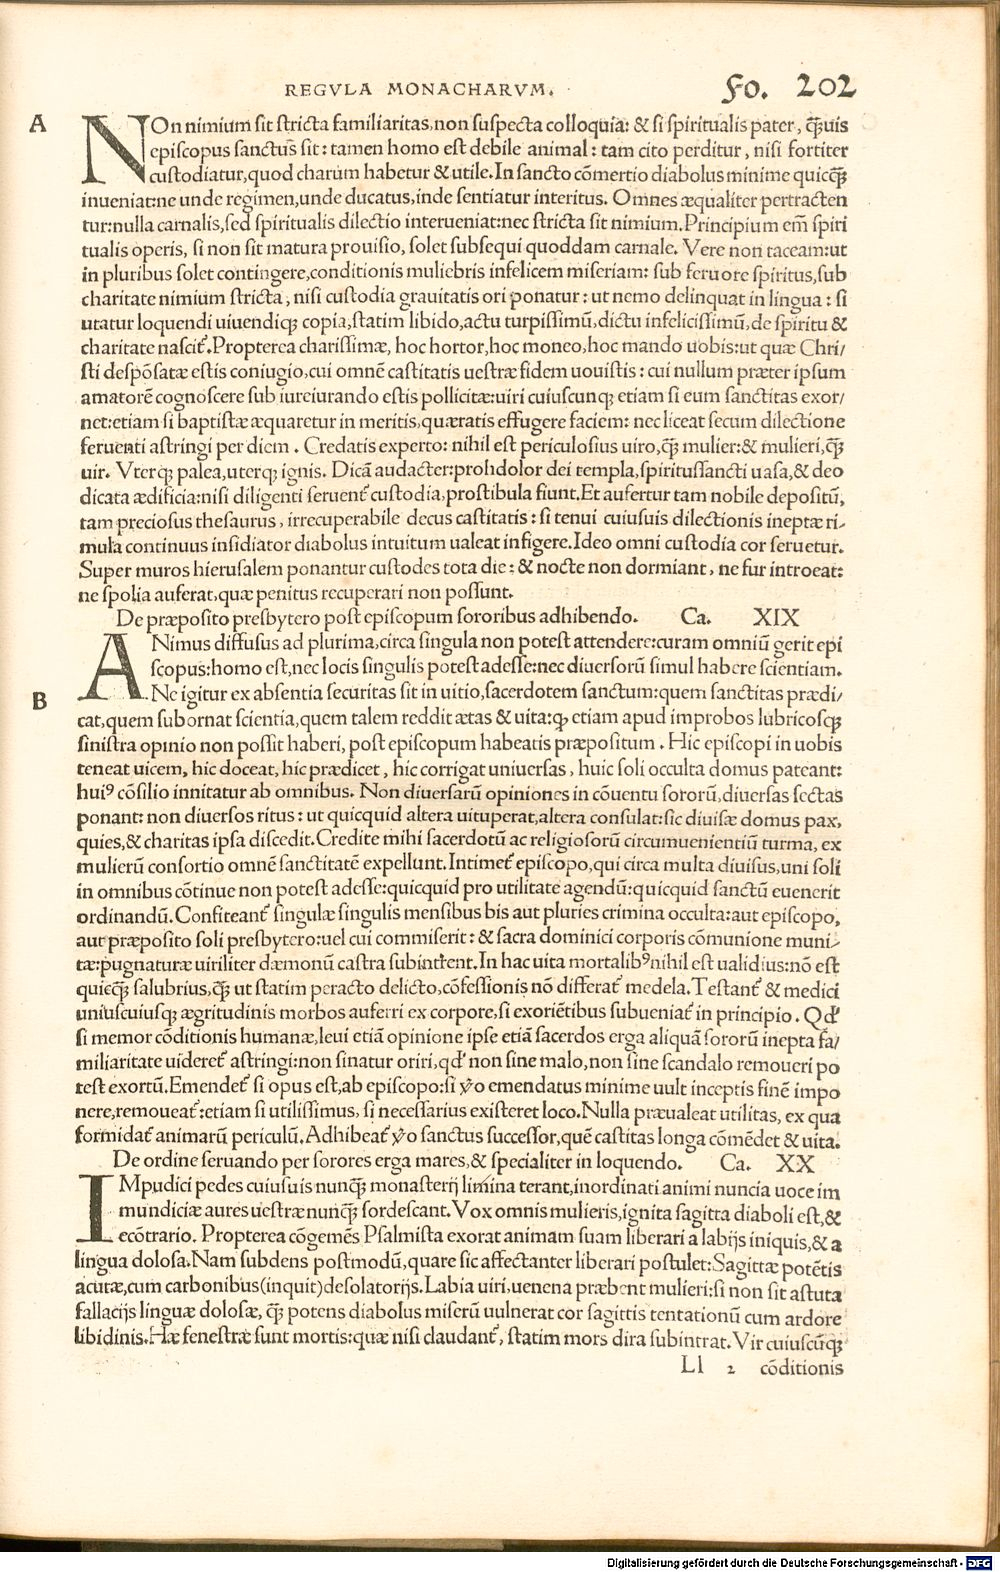 REGVLA MONACHARVM. Fo. 202
A
NOn nimium sit stricta familiaritas, non suspecta colloquia: & si spiritualis pater, q̃uis
episcopus sanctus sit: tamen homo est debile animal: tam cito perditur, nisi fortiter
custodiatur, quod charum habetur & utile. In sancto cõmertio diabolus minime quicq̃
inueniat: ne unde regimen, unde ducatus, inde sentiatur interitus. Omnes æqualiter pertracten
tur: nulla carnalis, sed spiritualis dilectio interueniat: nec stricta sit nimium. Principium em̃ spiri
tualis operis, si non sit matura prouisio, solet subsequi quoddam carnale. Vere non taceam: ut
in pluribus solet contingere, conditionis muliebris infelicem miseriam: sub feruore spiritus, sub
charitate nimium stricta, nisi custodia grauitatis ori ponatur: ut nemo delinquat in lingua: si
utatur loquendi uiuendiqꝫ copia, statim libido, actu turpissimũ, dictu infelicissimũ, de spiritu &
charitate nascit᷑. Propterea charissimæ, hoc hortor, hoc moneo, hoc mando uobis: ut quæ Chri/
sti despõsatæ estis coniugio, cui omnẽ castitatis uestræ fidem uouistis: cui nullum præter ipsum
amatorẽ cognoscere sub iureiurando estis pollicitæ: uiri cuiuscunqꝫ etiam si eum sanctitas exor/
net: etiam si baptistæ æquaretur in meritis, quæratis effugere faciem: nec liceat secum dilectione
feruenti astringi per diem. Credatis experto: nihil est periculosius uiro, q̃ mulier: & mulieri, q̃
uir. Vterqꝫ palea, uterqꝫ ignis. Dicã audacter: proh dolor dei templa, spiritussancti uasa, & deo
dicata ædificia: nisi diligenti seruent᷑ custodia, prostibula fiunt. Et aufertur tam nobile depositũ,
tam preciosus thesaurus, irrecuperabile decus castitatis: si tenui cuiusuis dilectionis ineptæ ri-
mula continuus insidiator diabolus intuitum ualeat infigere. Ideo omni custodia cor seruetur.
Super muros hierusalem ponantur custodes tota die: & nocte non dormiant, ne fur introeat:
ne spolia auferat, quæ penitus recuperari non possunt.
De præposito presbytero post episcopum sororibus adhibendo. Ca. XIX
ANimus diffusus ad plurima, circa singula non potest attendere: curam omniũ gerit epi
scopus: homo est, nec locis singulis potest adesse: nec diuersorũ simul habere scientiam.
B
Ne igitur ex absentia securitas sit in uitio, sacerdotem sanctum: quem sanctitas prædi/
cat, quem subornat scientia, quem talem reddit ætas & uita: ꝙ etiam apud improbos lubricosqꝫ
sinistra opinio non possit haberi, post episcopum habeatis præpositum. Hic episcopi in uobis
teneat uicem, hic doceat, hic prædicet, hic corrigat uniuersas, huic soli occulta domus pateant:
huiꝰ cõsilio innitatur ab omnibus. Non diuersarũ opiniones in cõuentu sororũ, diuersas sectas
ponant: non diuersos ritus: ut quicquid altera uituperat, altera consulat: sic diuisæ domus pax,
quies, & charitas ipsa discedit. Credite mihi sacerdotũ ac religiosorũ circumuenientiũ turma, ex
mulierũ consortio omnẽ sanctitatẽ expellunt. Intimet᷑ episcopo, qui circa multa diuisus, uni soli
in omnibus cõtinue non potest adesse: quicquid pro utilitate agendũ: quicquid sanctũ euenerit
ordinandũ. Confiteant᷑ singulæ singulis mensibus bis aut pluries crimina occulta: aut episcopo,
aut præposito soli presbytero: uel cui commiserit: & sacra dominici corporis cõmunione muni-
tæ: pugnaturæ uiriliter dæmonũ castra subintrent. In hac uita mortalibꝰ nihil est ualidius: nõ est
quicq̃ salubrius, q̃ ut statim peracto delicto, cõfessionis nõ differat᷑ medela. Testant᷑ & medici
uniuscuiusqꝫ ægritudinis morbos auferri ex corpore, si exoriẽtibus subueniat᷑ in principio. Qd'
si memor cõditionis humanæ, leui etiã opinione ipse etiã sacerdos erga aliquã sororũ inepta fa/
miliaritate uideret᷑ astringi: non sinatur oriri, qd' non sine malo, non sine scandalo remoueri po
test exortũ. Emendet᷑ si opus est, ab episcopo: si ỹo emendatus minime uult inceptis finẽ impo
nere, remoueat᷑: etiam si utilissimus, si necessarius existeret loco. Nulla præualeat utilitas, ex qua
formidat᷑ animarũ periculũ. Adhibeat᷑ ỹo sanctus successor, quẽ castitas longa cõmẽdet & uita.
De ordine seruando per sorores erga mares, & specialiter in loquendo. Ca. XX
IMpudici pedes cuiusuis nunq̃ monasterij limina terant, inordinati animi nuncia uoce im
mundiciæ aures uestræ nunq̃ sordescant. Vox omnis mulieris, ignita sagitta diaboli est, &
ecõtrario. Propterea cõgemẽs Psalmista exorat animam suam liberari a labijs iniquis, & a
lingua dolosa. Nam subdens postmodũ, quare sic affectanter liberari postulet: Sagittæ potẽtis
acutæ, cum carbonibus (inquit) desolatorijs. Labia uiri, uenena præbent mulieri: si non sit astuta
fallacijs linguæ dolosæ, q̃ potens diabolus miserũ uulnerat cor sagittis tentationũ cum ardore
libidinis. Hæ fenestræ sunt mortis: quæ nisi claudant᷑, statim mors dira subintrat. Vir cuiuscũqꝫ
Ll 2 cõditionis
Digitalisierung gefördert durch die Deutsche Forschungsgemeinschaft - DFG